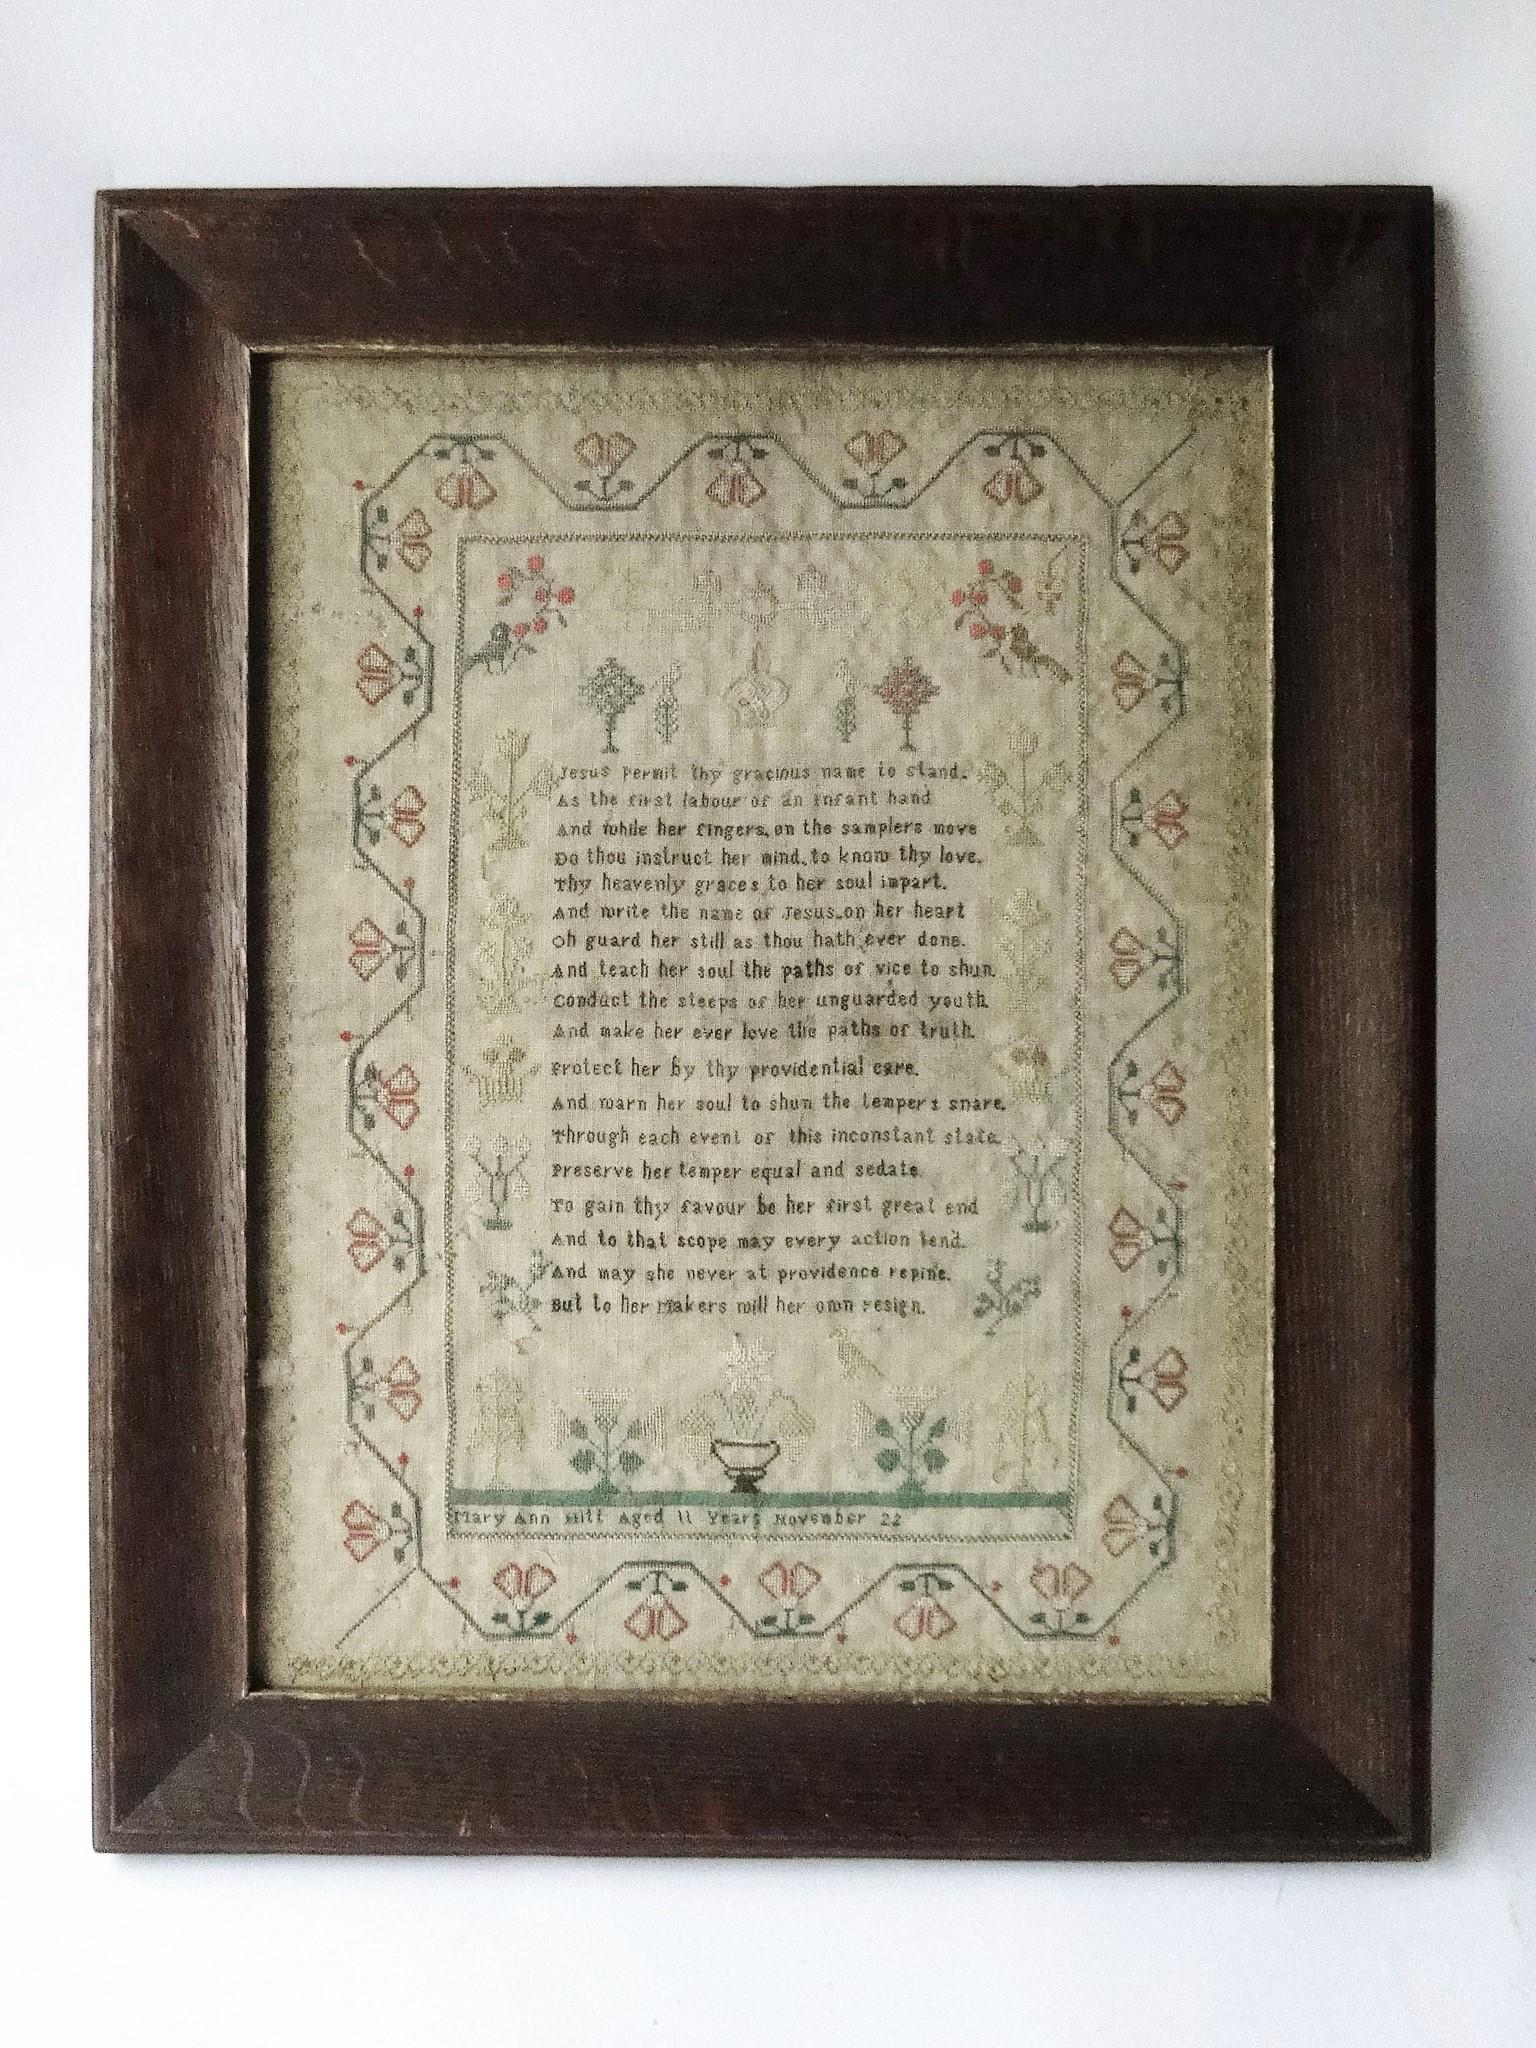 Jesus permit thy gracious name to stand.
As the first labour of an infant hand
And while her fingers, on the samplers move
Do thou instruct her mind, to know thy love.
Thy heavenly graces to her soul impart.
And write the name of Jesus, on her heart
Oh guard her still as thou hath ever done.
And teach her soul the paths of vice to shun.
Conduct the steeps of her unguarded youth.
And make her ever love the paths of truth.
Protect her by thy providential care.
And warn her soul to shun the tempers snare.
Through each event of this inconstant state.
Preserve her temper equal and sedate.
To gain thy favour be her first great end
And to that scope may every action tend.
And may she never at providence repine.
But to her Makers will her own resign.
Mary Ann Hill Aged 11 Years November 22